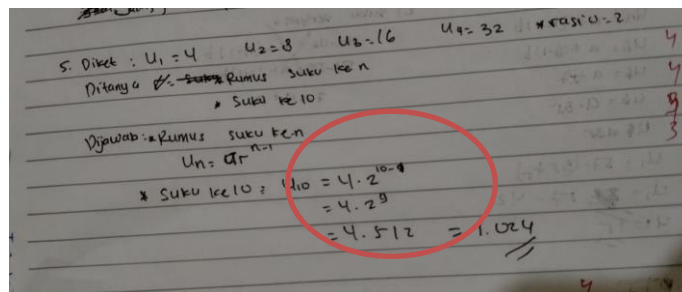 5. Diket : U1 = 4 U2 = 8 U3 = 16 U4 = 32 * rasio = 2
Ditanya * Rumus suku ke n
* Suku ke 10
Dijawab : * Rumus suku ke n
Un = ar^n-1
* Suku ke 10 : U10 = 4 . 2^10-1
= 4 . 2^9
= 4 . 512 = 1.024
4
4
3
4